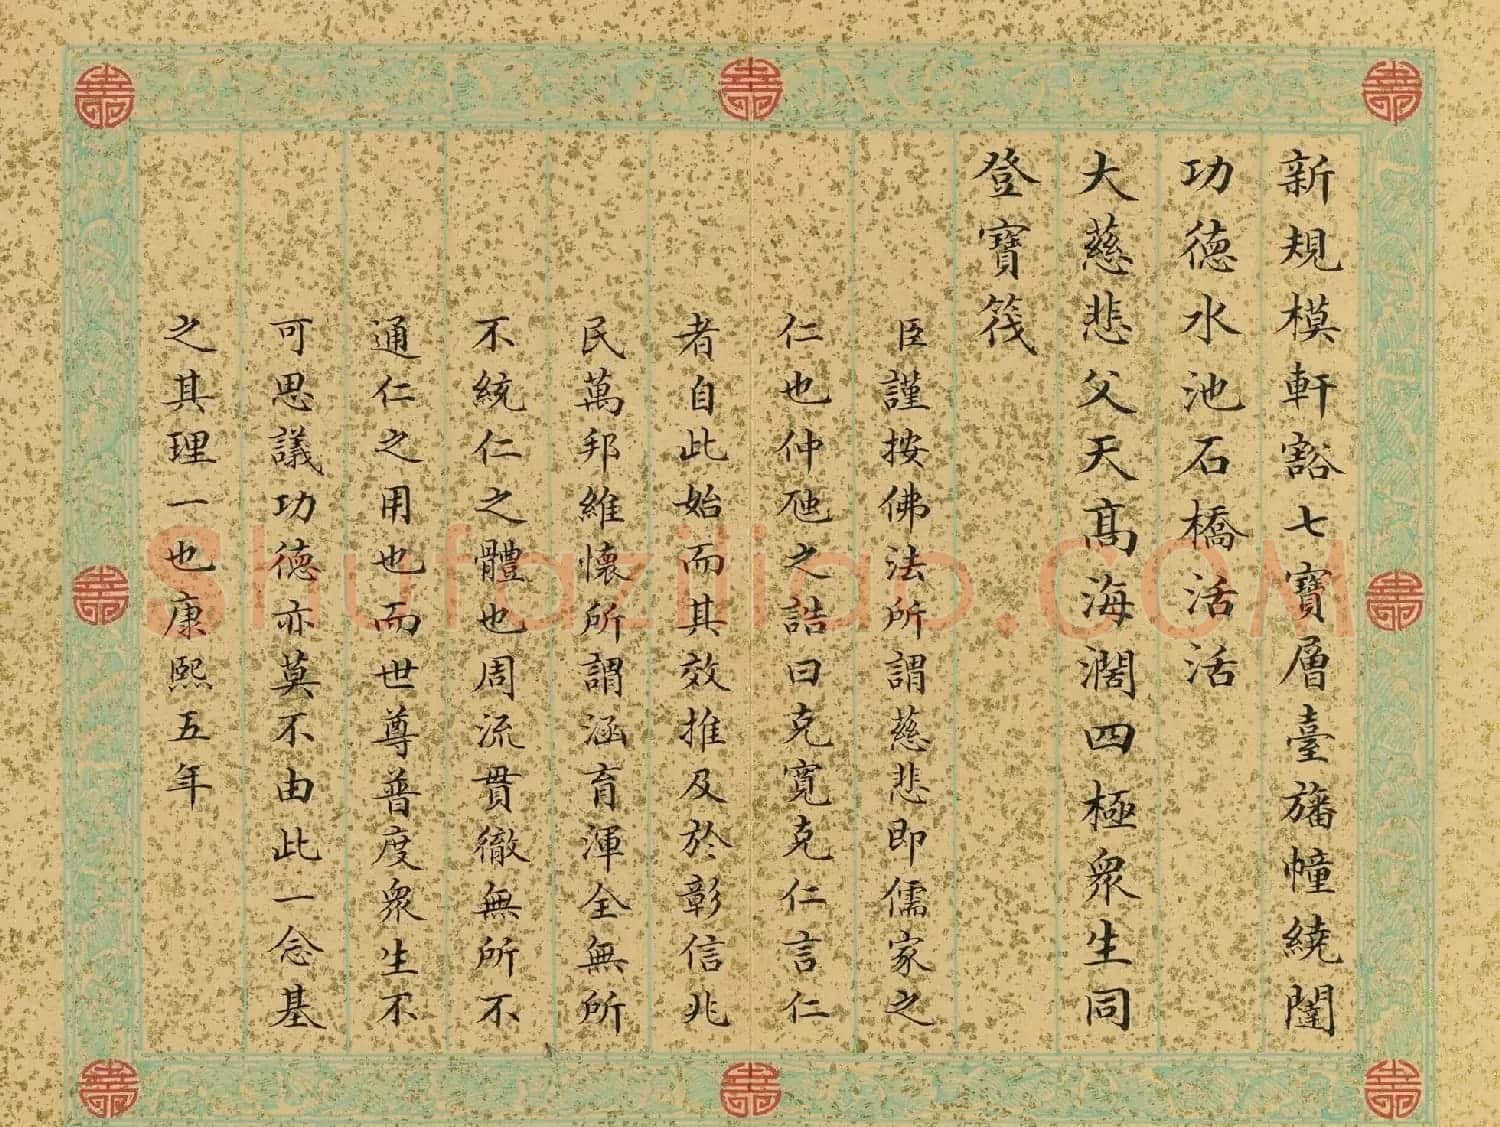 新規模軒豁七寶層臺旛幢繞闥
功德水池石橋活活
大慈悲父天高海濶四極衆生同
登寶筏
臣謹按佛法所謂慈悲即儒家之
仁也仲虺之誥曰克寬克仁言仁
者自此始而其效推及於彰信兆
民萬邦維懷所謂涵育渾全無所
不統仁之體也周流貫徹無所不
通仁之用也而世尊普度衆生不
可思議功德亦莫不由此一念基
之其理一也康熙五年
Shufaziliao.COM